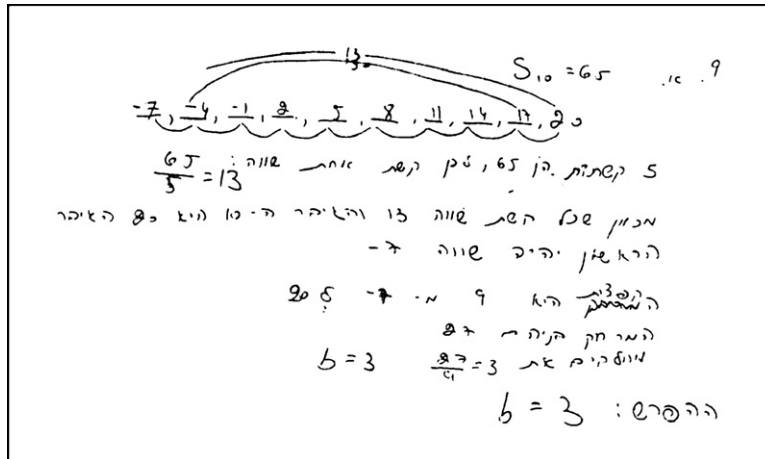 9. א. S₁₀ = 65
13
13
-7, -4, -1, 2, 5, 8, 11, 14, 17, 20
5 קשתות הן 65, לכן קשת אחת שווה: 65/5 = 13
מכוון שכל קשת שווה 13 והאיבר ה-10 הוא 20 האיבר
הראשון יהיה שווה -7
הקפצות הוא 9 מ- -7 ל 20
המרחק ביניהם 27
מחלקים את 27/9 = 3 b = 3
ההפרש: b = 3